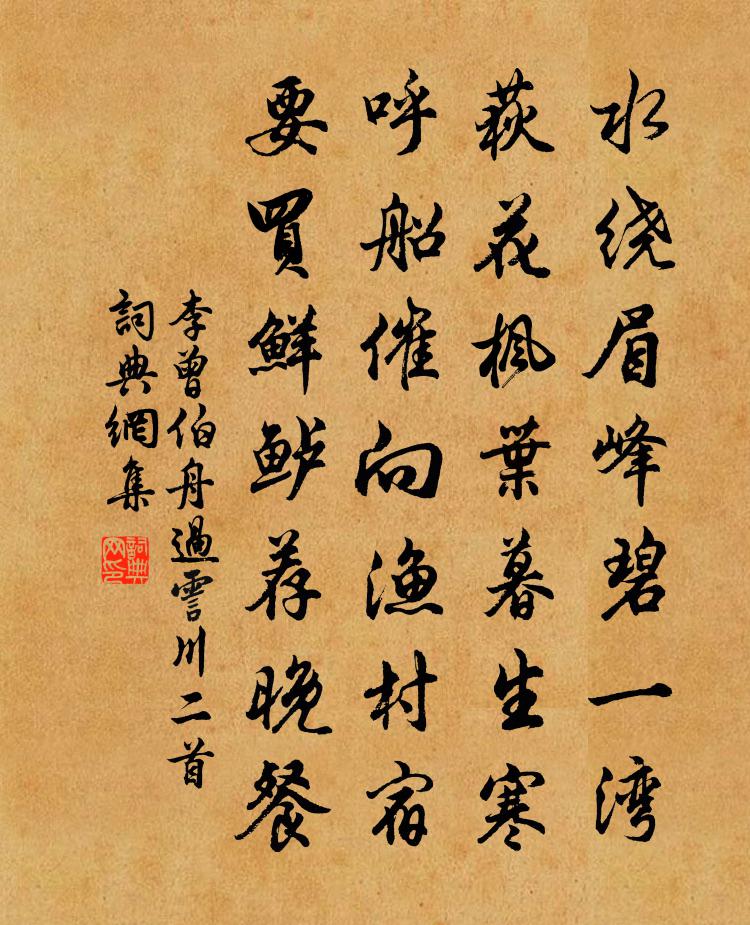 水绕眉峰碧一湾
萩花枫葉暮生寒
呼船催向渔村宿
要買鮮鲈荐晚餐
李曾伯舟過霅川二首
詞典網集
詞典
网印